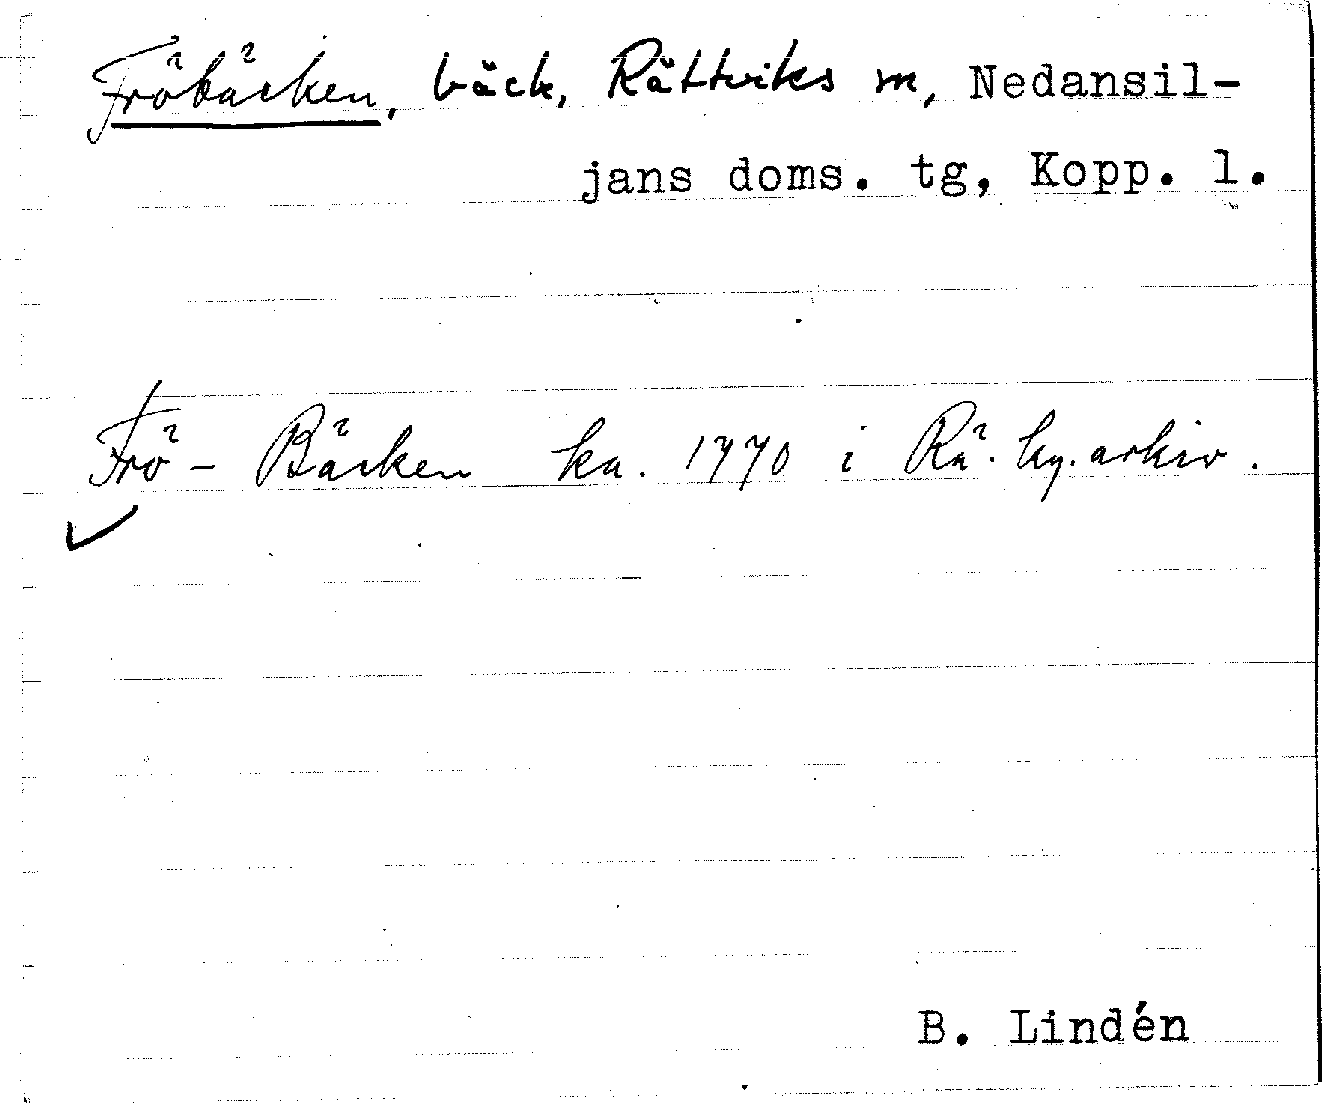 Fröbäcken, bäck, Rättviks m, Nedansil-
jans doms. tg, Kopp. l.
Frö- Bäcken ka. 1770 i Rä. ky. arkiv.
B. Lindén